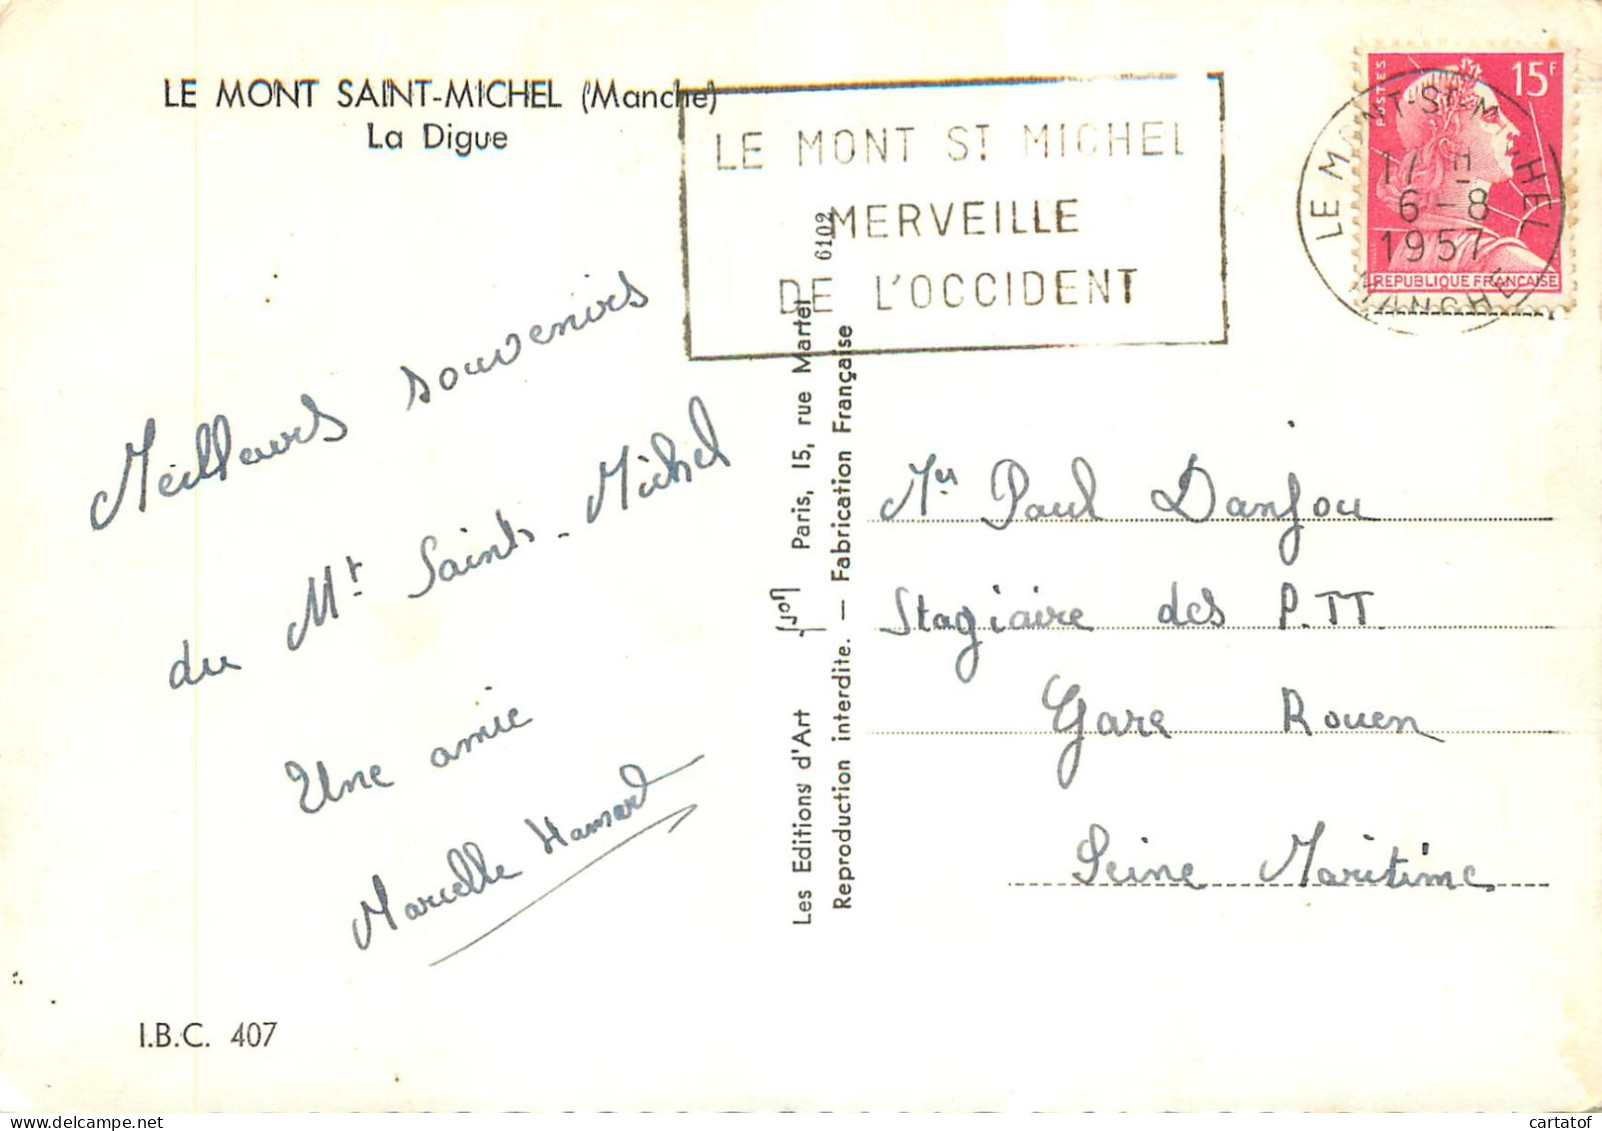 LE MONT SAINT-MICHEL (Manche)
La Digue
LE MONT ST MICHEL
MERVEILLE
DE L'OCCIDENT
POSTES
15F
REPUBLIQUE FRANÇAISE
LE MONT-ST-MICHEL
17 H
6-8
1957
MANCHE
Meilleurs souvenirs
du Mt Saint-Michel
Une amie
Marcelle Hamard
I.B.C. 407
Les Editions d'Art Yvon Paris, 15, rue Martel 6102
Reproduction interdite. — Fabrication Française
Mr Paul Danjou
Stagiaire des P.TT.
Gare Rouen
Seine Maritime
cartatof